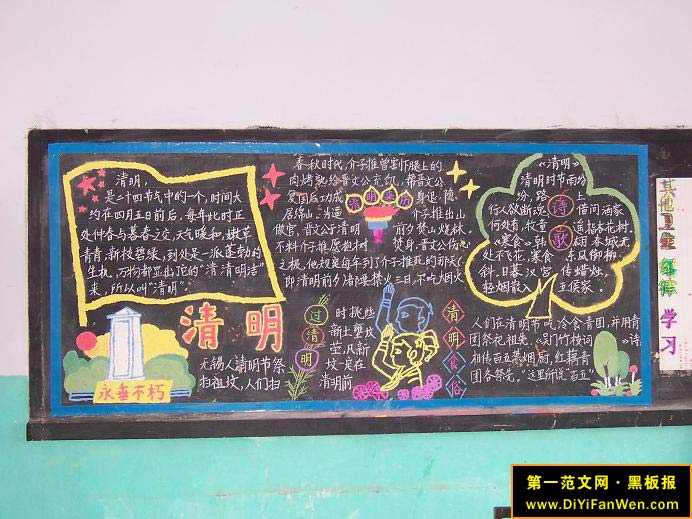 清明,
是二十四节气中的一个,时间大
约在四月五日前后,每年此时正
处仲春与暮春之交,天气暖和,嫩草
青青,新枝碧绿,到处是一派蓬勃的
生机,万物都显出它的“清清明洁”
来,所以叫“清明”。
清明
永垂不朽
春秋时代,介子推曾割下腿上的
肉烤熟给晋文公充饥,帮晋文公
爱国后功成身退,隐
居绵山,为逼介子推出山
做官,晋文公于清明前夕焚山烧林,
不料介子推愿抱树焚身,晋文公伤心
之极,他规定每年到了介子推死的那天(
即清明前夕)禁火三日,不吃烟火
清明来历
《清明》
清明时节雨纷
纷,路上
行人欲断魂,借问酒家
何处有,牧童遥指杏花村。
《寒食》韩翃 春城无
处不飞花,寒食东风御柳
斜,日暮汉宫传蜡烛,
轻烟散入五侯家。
诗歌
过清明
无锡人清明节祭
扫祖坟,人们扫
时挑些
新土壅坟
莹,凡新
坟一定在
清明前
清明食俗
人们在清明节吃冷食青团,并用青
团祭祀祖先,《吴门竹枝词》诗,
相传百五禁烟厨,红藕青
团各祭先,“这里所说“百五”
其他卫生
学习
第一范文网·黑板报
www.DiYiFanWen.com